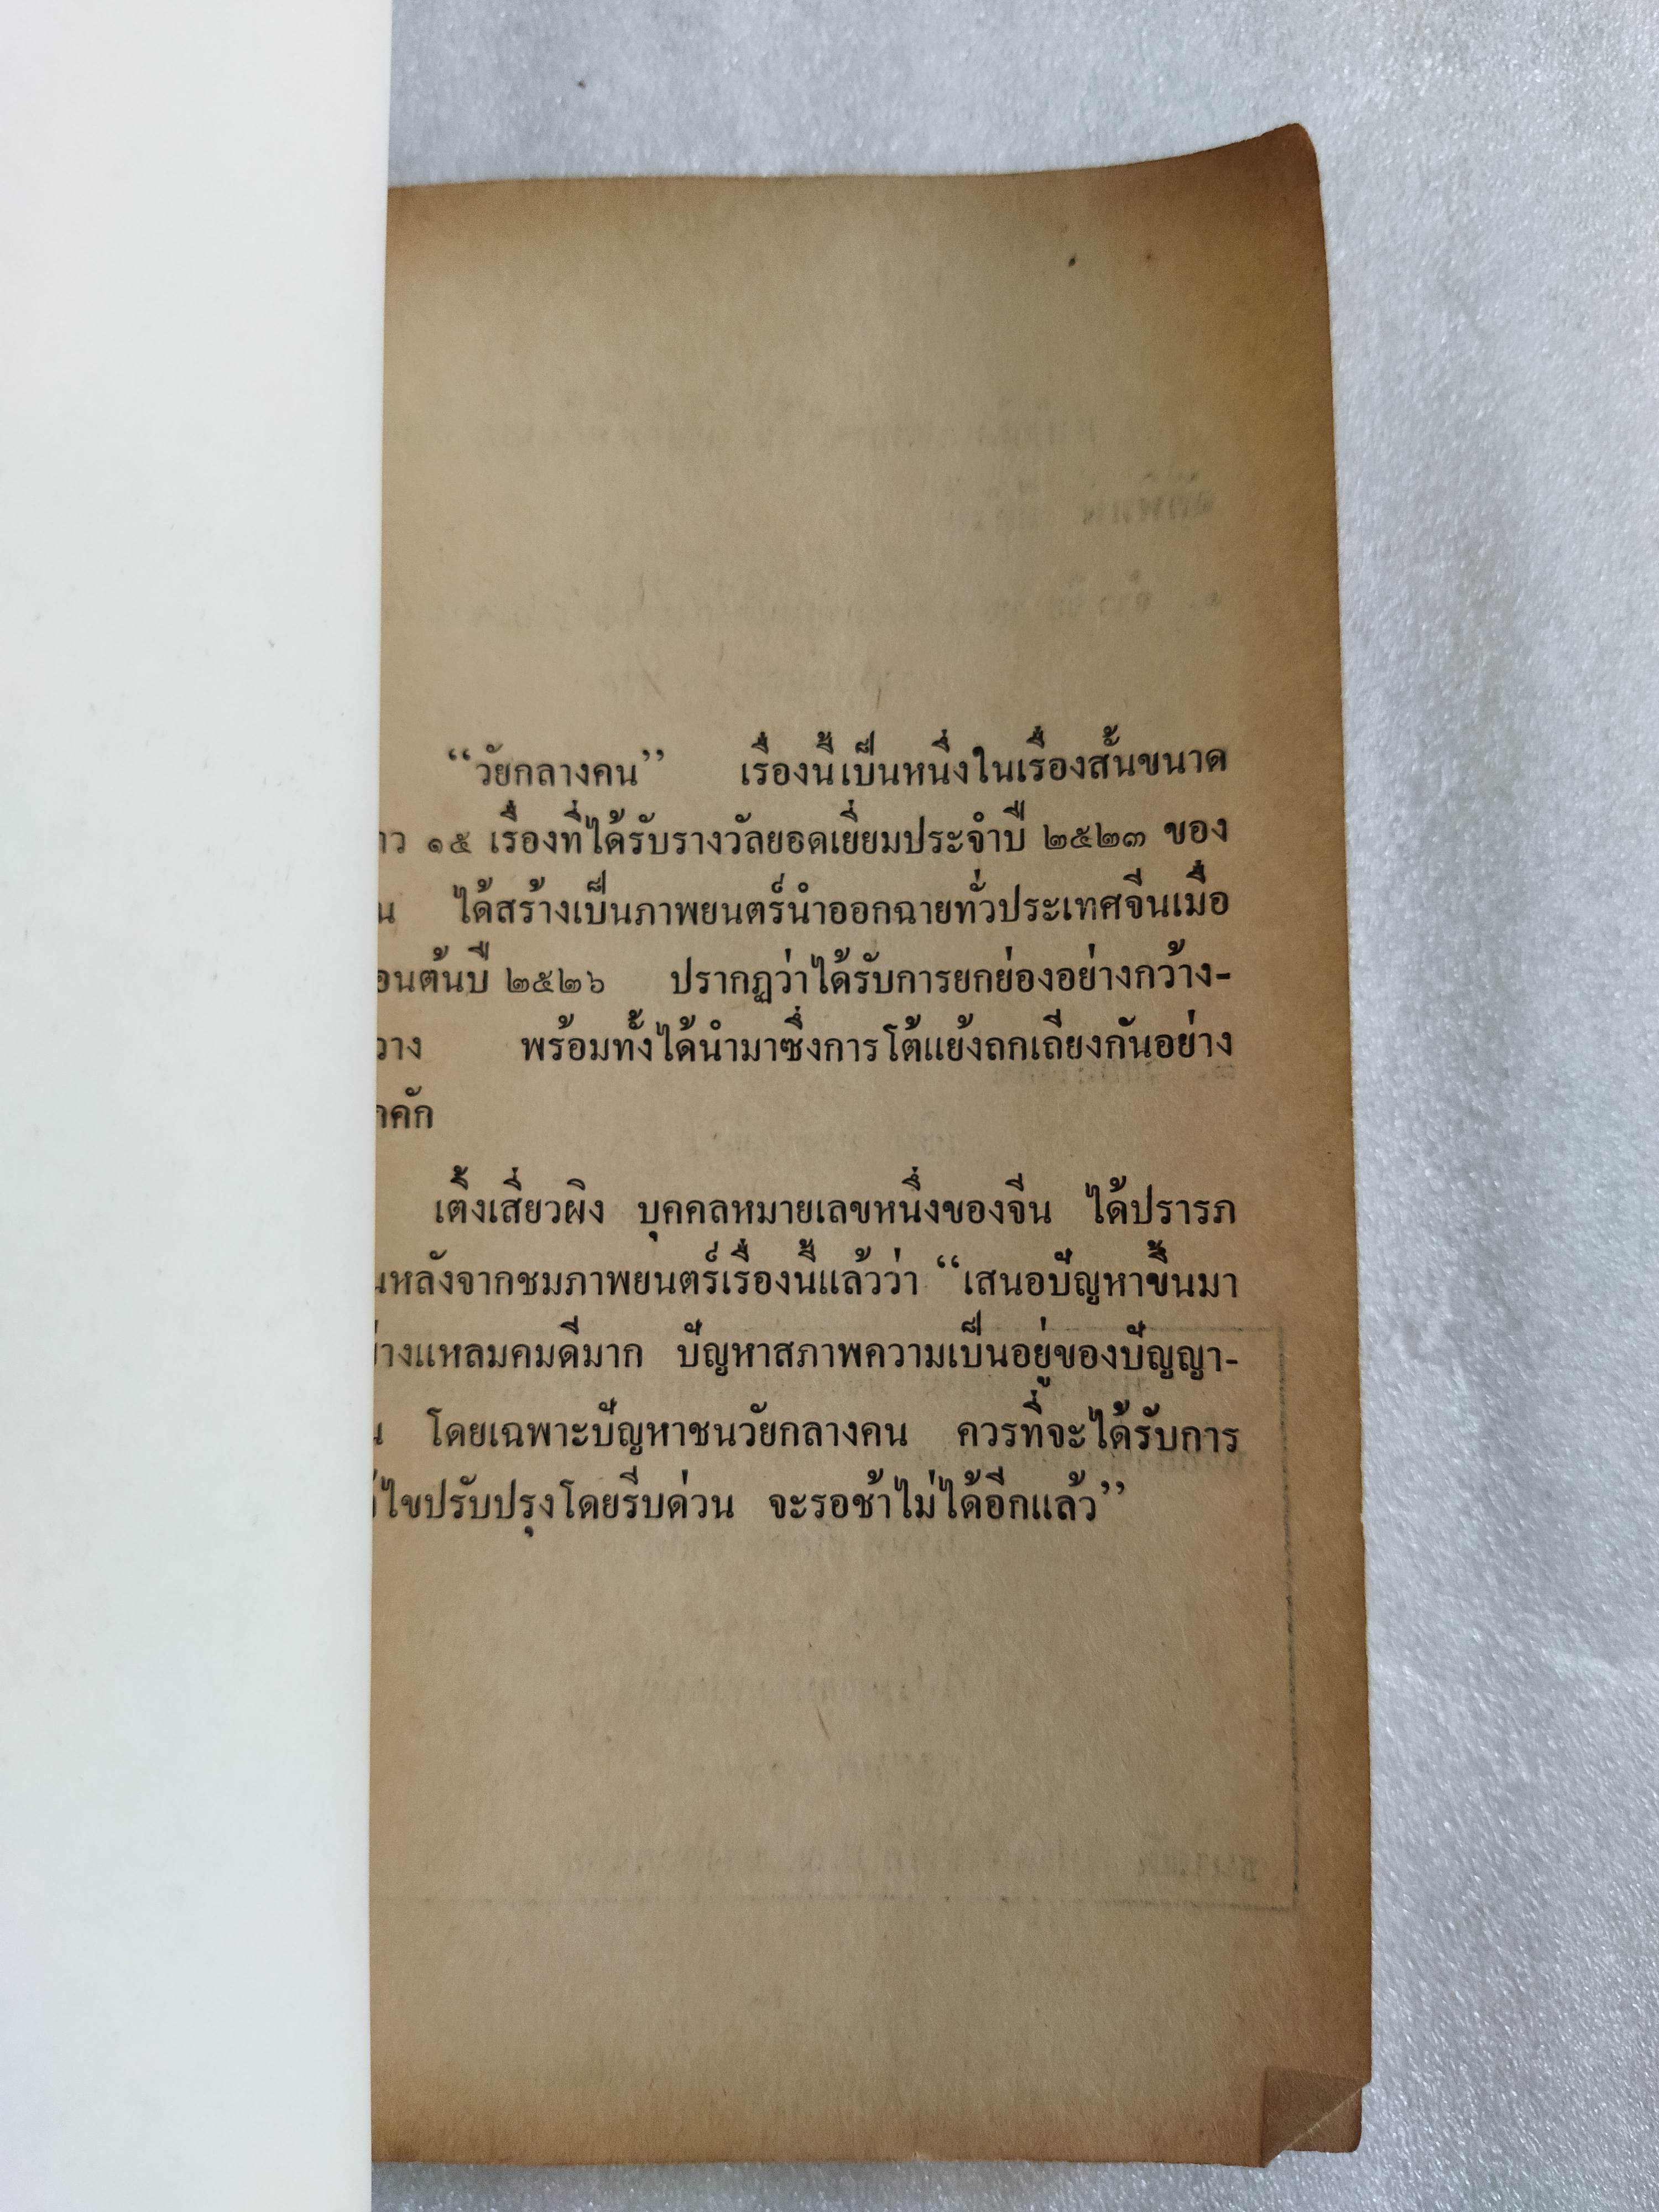 “วัยกลางคน” เรื่องนี้เป็นหนึ่งในเรื่องสั้นขนาด
าว ๑๕ เรื่องที่ได้รับรางวัลยอดเยี่ยมประจำปี ๒๕๒๓ ของ
น ได้สร้างเป็นภาพยนตร์นำออกฉายทั่วประเทศจีนเมื่อ
อนต้นปี ๒๕๒๖ ปรากฏว่าได้รับการยกย่องอย่างกว้าง-
วาง พร้อมทั้งได้นำมาซึ่งการโต้แย้งถกเถียงกันอย่าง
กคัก
เติ้งเสี่ยวผิง บุคคลหมายเลขหนึ่งของจีน ได้ปรารภ
นหลังจากชมภาพยนตร์เรื่องนี้แล้วว่า “เสนอปัญหาขึ้นมา
ย่างแหลมคมดีมาก ปัญหาสภาพความเป็นอยู่ของปัญญา-
น โดยเฉพาะปัญหาชนวัยกลางคน ควรที่จะได้รับการ
ก้ไขปรับปรุงโดยรีบด่วน จะรอช้าไม่ได้อีกแล้ว”